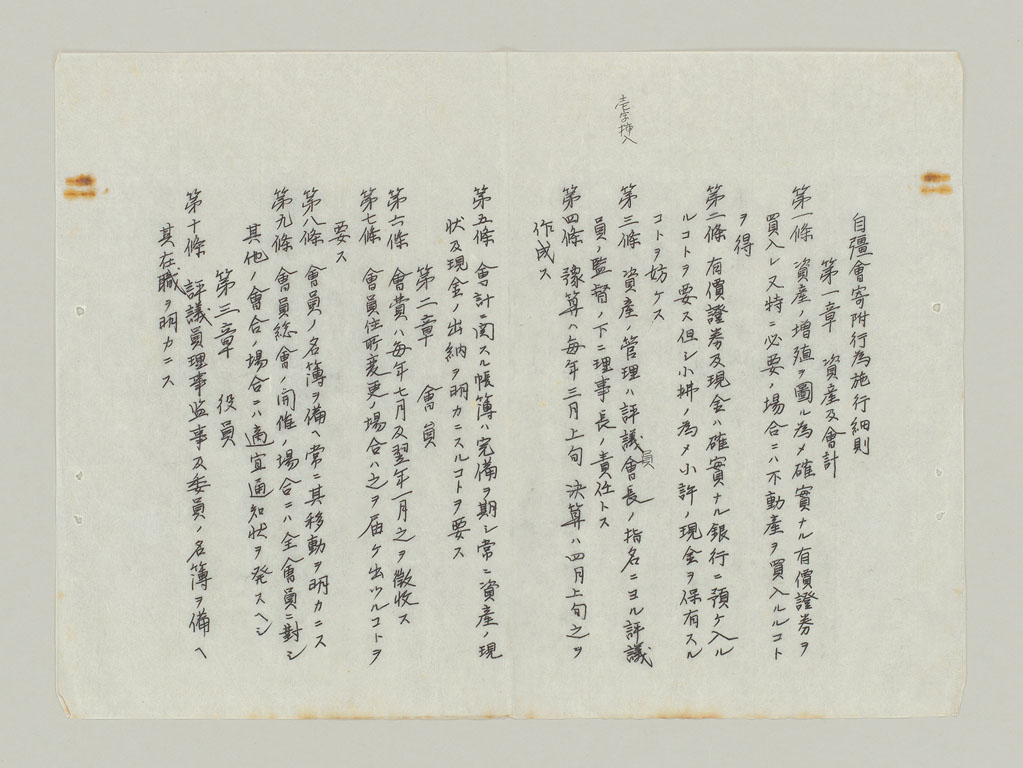 壱字挿入
自彊會寄附行為施行細則
第一章 資産及會計
第一條 資産ノ増殖ヲ圖ル為メ確實ナル有價證券ヲ
買入レ又特ニ必要ノ場合ニハ不動産ヲ買入ルルコト
ヲ得
第二條 有價證券及現金ハ確實ナル銀行ニ預ケ入ル
ルコトヲ要ス但シ小拂ノ為メ小許ノ現金ヲ保有スル
コトヲ妨ケス
第三條 資産ノ管理ハ評議員會長ノ指名ニヨル評議
員ノ監督ノ下ニ理事長ノ責任トス
第四條 豫算ハ毎年三月上旬 決算ハ四月上旬之ヲ
作成ス
第五條 會計ニ関スル帳簿ハ完備ヲ期シ常ニ資産ノ現
状及現金ノ出納ヲ明カニスルコトヲ要ス
第二章 會員
第六條 會費ハ毎年七月及翌年一月之ヲ徴收ス
第七條 會員住所変更ノ場合ハ之ヲ届ケ出ツルコトヲ
要ス
第八條 會員ノ名簿ヲ備ヘ常ニ其移動ヲ明カニス
第九條 會員総會ノ開催ノ場合ニハ全會員ニ對シ
其他ノ會合ノ場合ニハ適宜通知状ヲ発スヘシ
第三章 役員
第十條 評議員理事監事及委員ノ名簿ヲ備ヘ
其在職ヲ明カニス